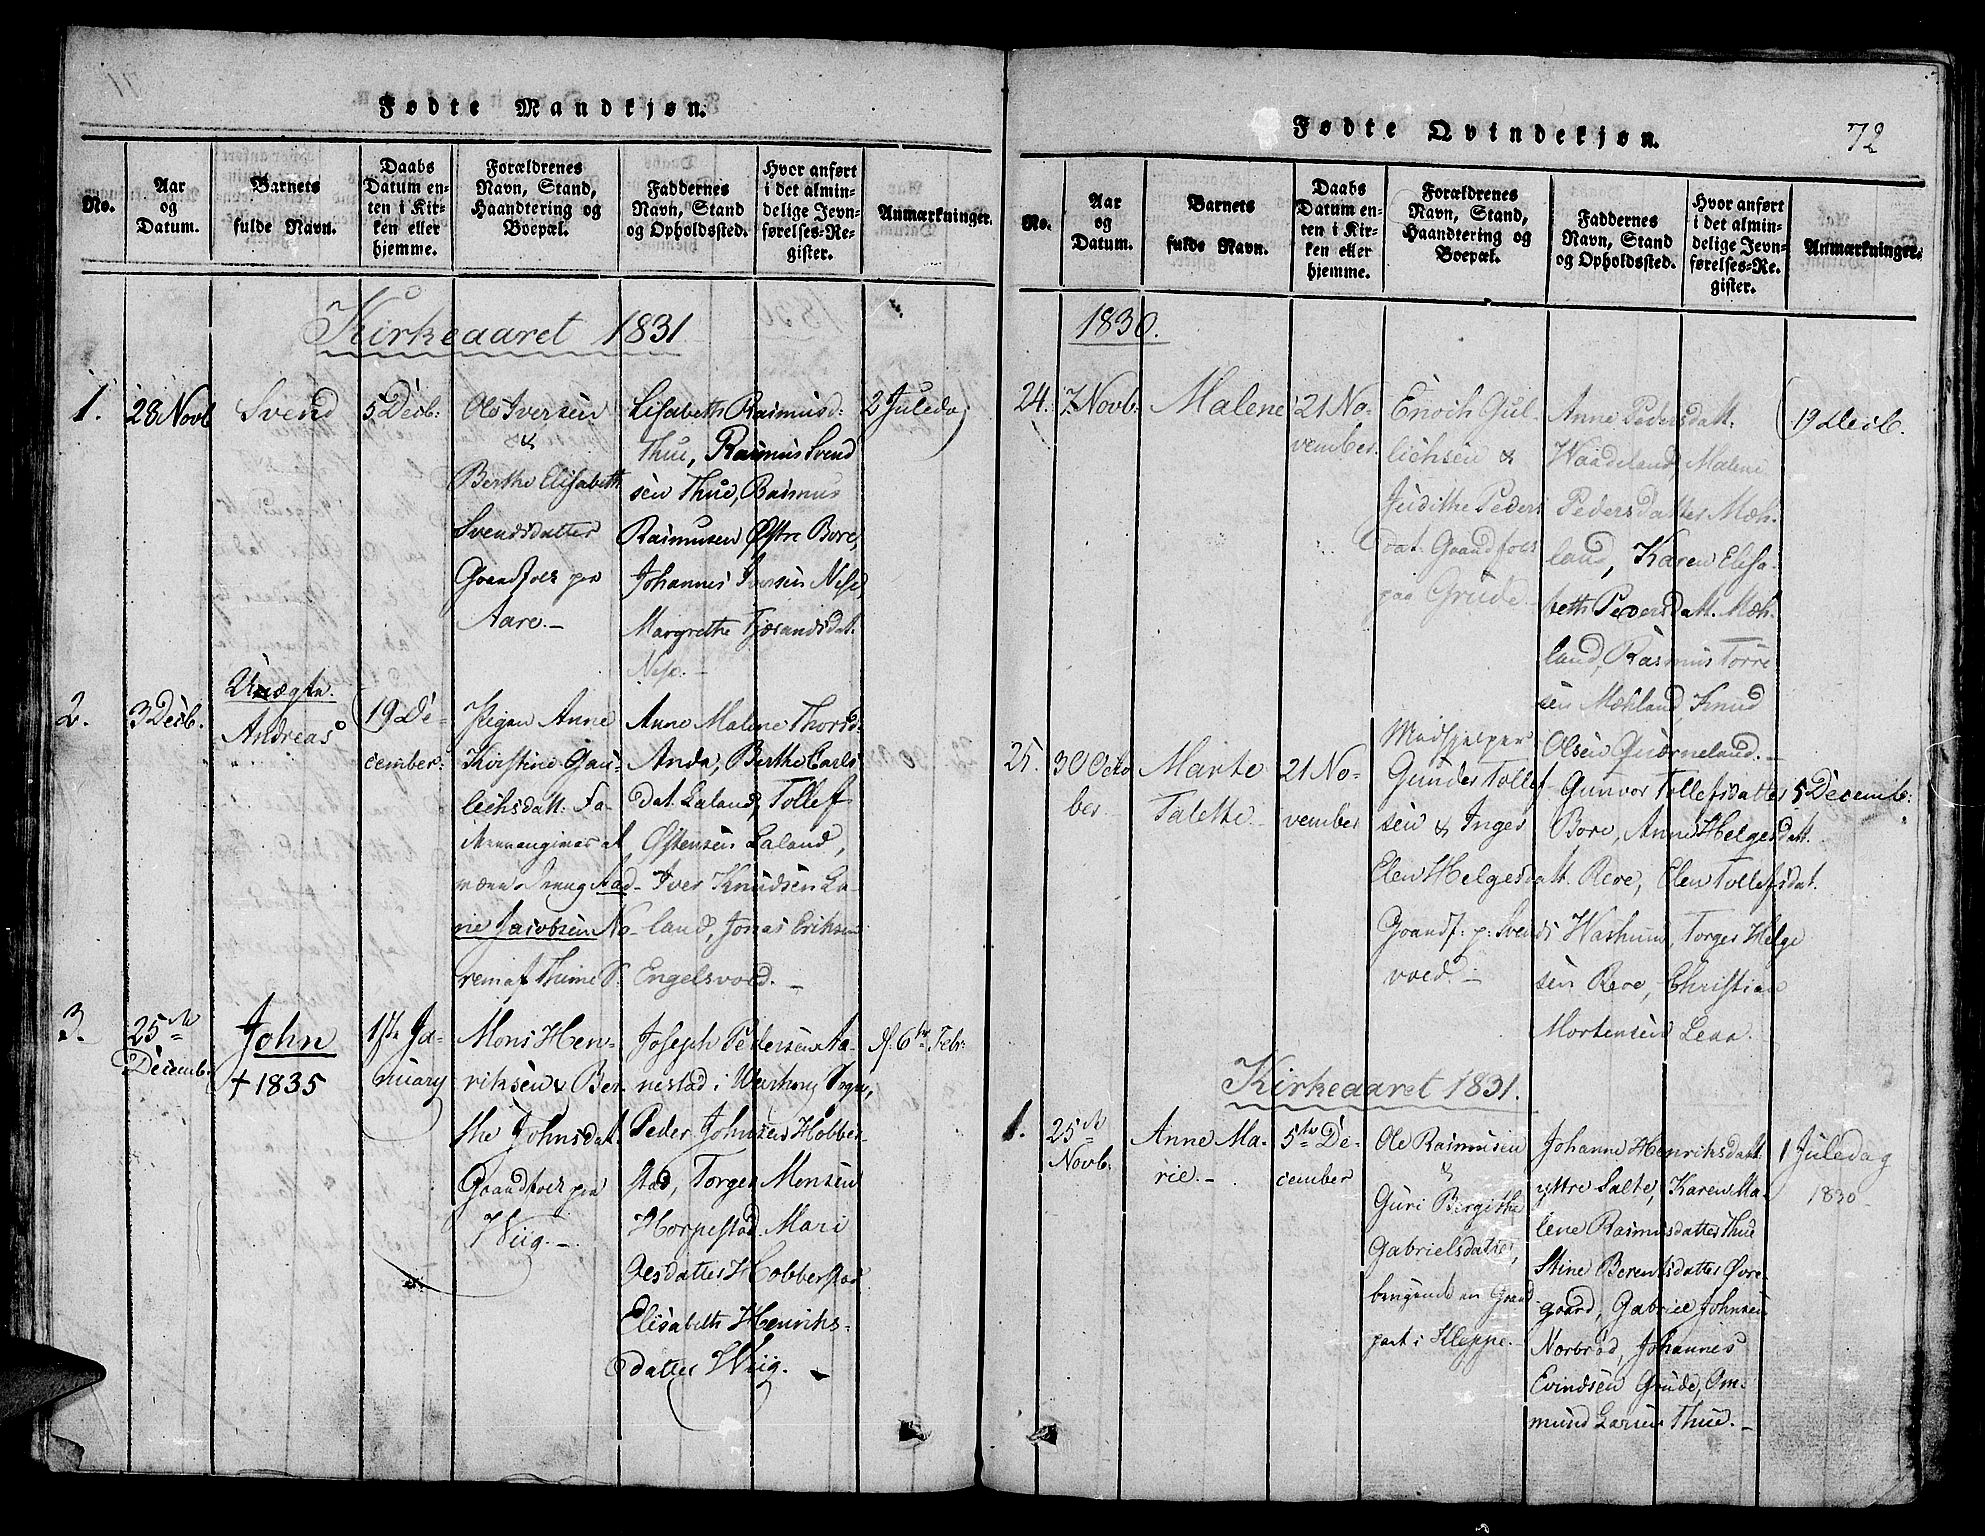 Fødte Mandkjøn.
No.
Aar
og
Datum.
Barnets
fulde Navn.
Daabs
Datum en-
ten i Kir-
ken eller
hjemme.
Forældrenes
Navn, Stand,
Haandtering og
Boepæl.
Faddernes
Navn, Stand
og Opholdssted.
Hvor anført
i det almin-
delige Jevn-
førelses-Re-
gister.
Anmærkninger.
Kirkeaaret 1831
1.
28 Novb
Svend
5 Decb:
Ole Iversen
&
Berthe Elisabeth
Svendsdatter
Gaardfolk paa
Aare.-
Lisabeth Rasmusd:
Thue, Rasmus Svend
sen Thue, Rasmus
Rasmusen Østre Bore,
Johannes Iversen Nese,
Margrethe Tjørandsdat.
Nese.-
2 Juledag
2.
3 Decb.
Uægte.
Andreas
19 De-
cember:
Pigen Anne
Kirstine Gau-
lichsdatt. Fa-
Jacobsen No-
rem af Thime S.
Anne Malene Thorsd:
Anda, Berthe Earls
dat. Laland, Tollef
Østensen Laland,
Iver Knudsen La-
land, Jonas Eriksen
Engelsvoed.-
3.
25de
Decemb.
John
+ 1835
1ste Ja-
nuary
Mons Hen-
riksen & Ber-
the Johnsdat.
Gaardfolk paa
Wiig.-
Joseph Pedersen Aa-
nestad i Warhoug Sogn,
Peder Johnsen Hobber-
stad, Torger Monsen
Horpestad Mari
Oesdatter Hobberstad
Elisabeth Henriks-
datter Wiig.-
d. 6te Febr:
Fødte Qvindekjøn.
72
No.
Aar
og
Datum.
Barnets
fulde Navn.
Daabs
Datum en-
ten i Kir-
ken eller
hjemme.
Forældrenes
Navn, Stand,
Haandtering og
Boepæl.
Faddernes
Navn, Stand
og Opholdssted.
Hvor anført
i det almin-
delige Jevn-
førelses-Re-
gister.
Anmærkninger.
1830.
24.
7 Novb:
Malene
21 No-
vember.
Enoch Gul-
lichsen &
Judithe Peders
dat. Gaardfolk
paa Grude-
Anne Pedersdatt.
Waadeland, Malene
Pedersdatter Mæh-
land, Karen Elisa-
beth Pedersdatt. Mæh-
land, Rasmus Torre
sen Mæhland, Knud
Olsen Quærneland.-
19 Decb.
25.
30 Octo
ber
Marte
Talette-
21 No-
vember
Gunder Tollef
sen & Inger
Elen Helgesdatt.
Gaardf. p: Svends
voed.-
Gunvor Tollefsdatter
Bore, Anne Helgesdatt.
Reve, Elen Tollefsdat.
Hashum, Torger Helge
sen Reve, Christian
Mortensen Lexa.
5 Decemb:
Kirkeaaret 1831.
1.
25de
Novb.
Anne Ma-
rie.-
5te De-
cember
Ole Rasmusen
&
Guri Bergithe
Gabrielsdatter,
part i Kleppe.-
Johanne Henriksdatt.
yttre Salte, Karen Ma-
lene Rasmusdatter Thue
Stine Berentsdatter Øvre-
gaard, Gabriel Johnsen
Norbrød, Johannes
Evindsen Grude, Om-
mund Larsen Thue.-
1 Juledag
1830